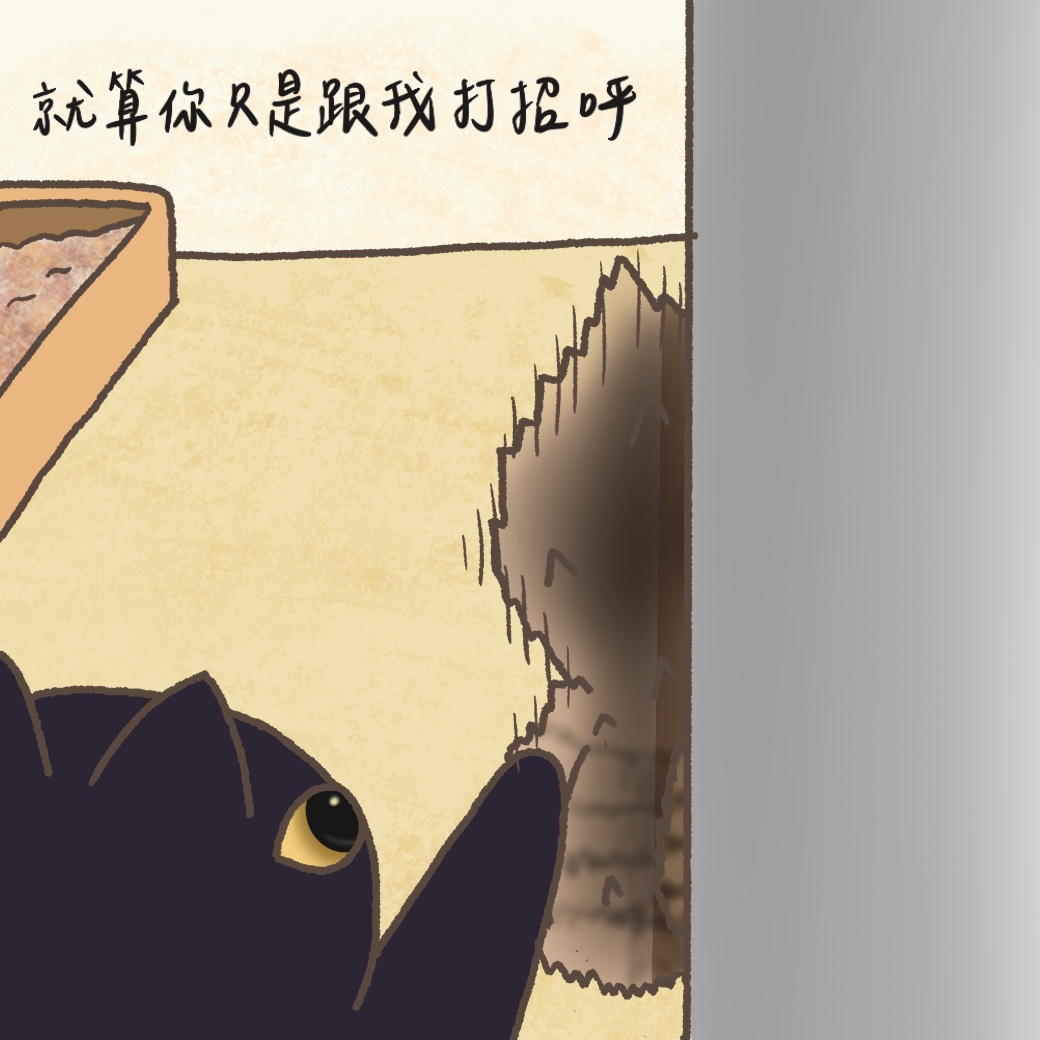 就算你只是跟我打招呼